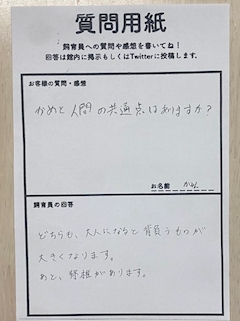 質問用紙
飼育員への質問や感想を書いてね！
回答は館内に掲示もしくはTwitterに投稿します.
お客様の質問・感想
かめと人間の共通点はありますか？
お名前
飼育員の回答
どちらも、大人になると背負うものが
大きくなります。
あと、脊椎があります。